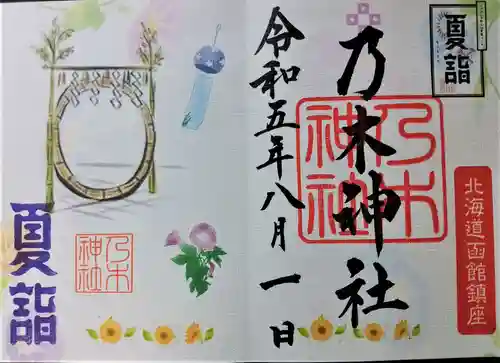 夏詣
乃木神社
北海道函館鎮座
乃木神社
令和五年八月一日
夏詣
乃木神社